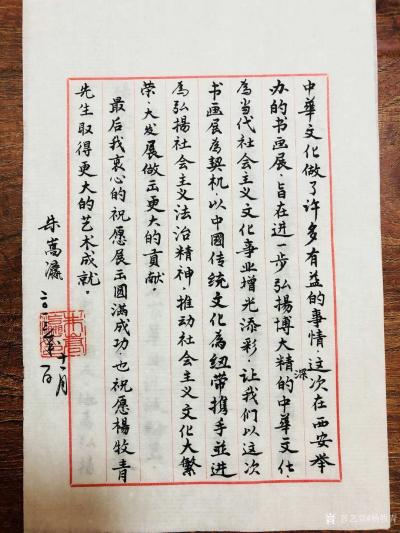 中華文化做了许多有益的事情。这次在西安举
办的书画展，旨在进一步弘揚博大精深的中华文化，
為当代社会主义文化事业增光添彩，让我们以这次
书画展為契机，以中國传统文化為纽带携手並进
為弘揚社会主义法治精神，推动社会主义文化大繁
荣、大发展做出更大的貢献。
最后我衷心的祝愿展示圆满成功，也祝愿楊牧青
先生取得更大的艺术成就。
朱嵩瀛
十一月